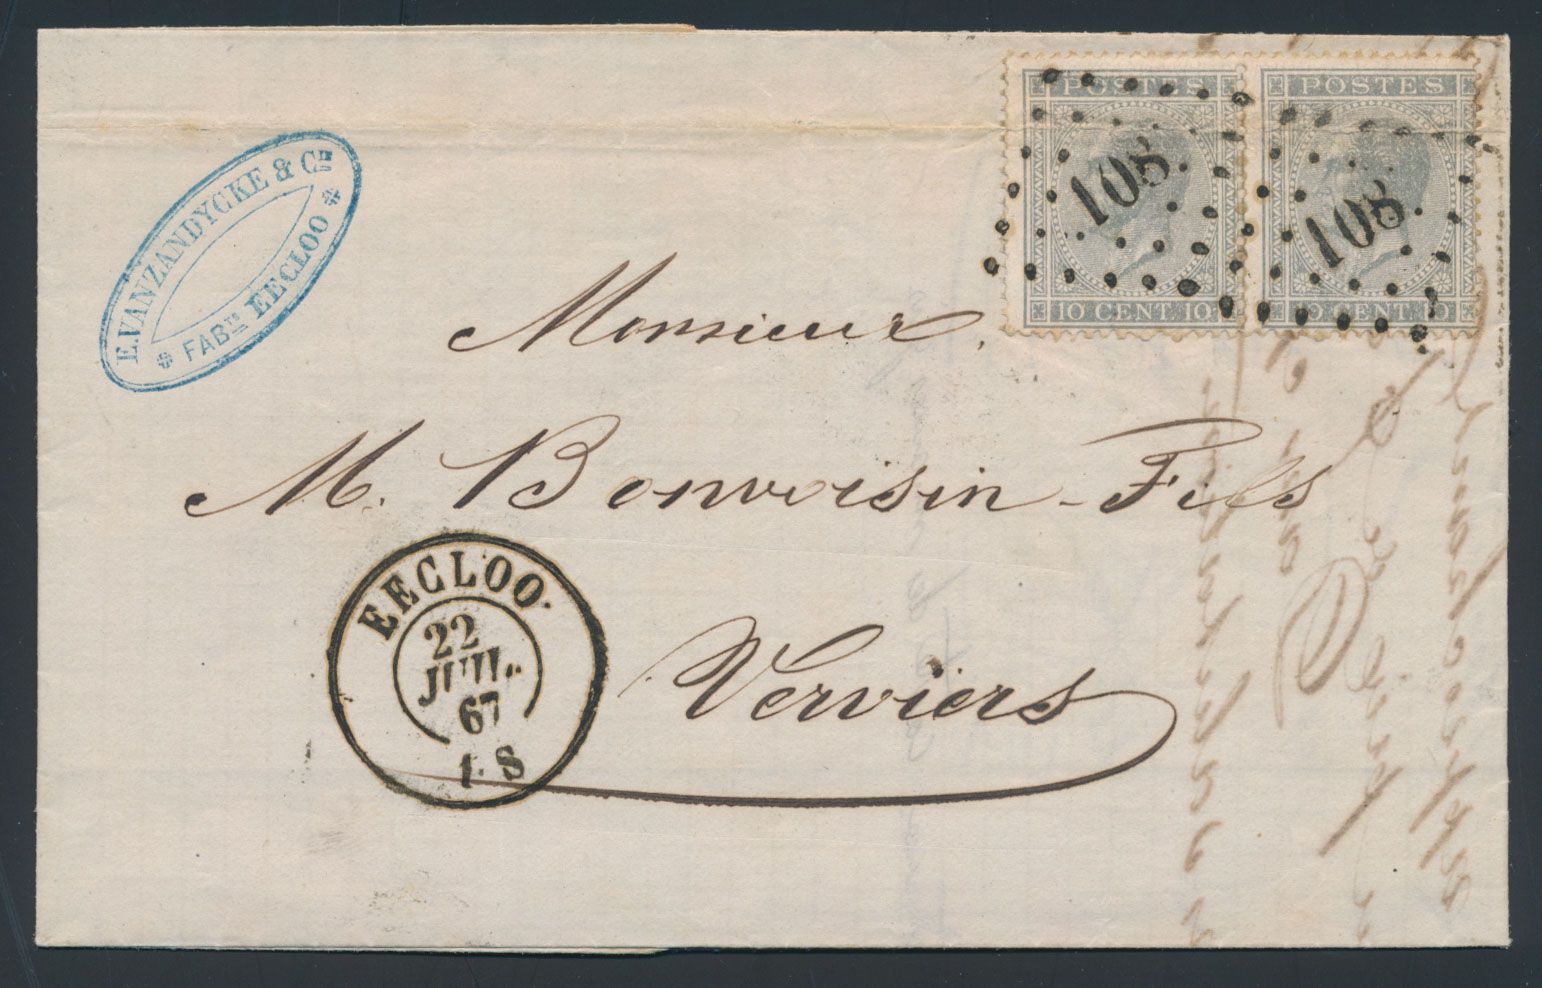 POSTES POSTES
108 108
10 CENT. 10 10 CENT. 10
E. VANZANDYCKE & Cie
FABts EECLOO
Monsieur,
M. Bonvoisin-Fils
Verviers
EECLOO
22
JUIL.
67
1·S